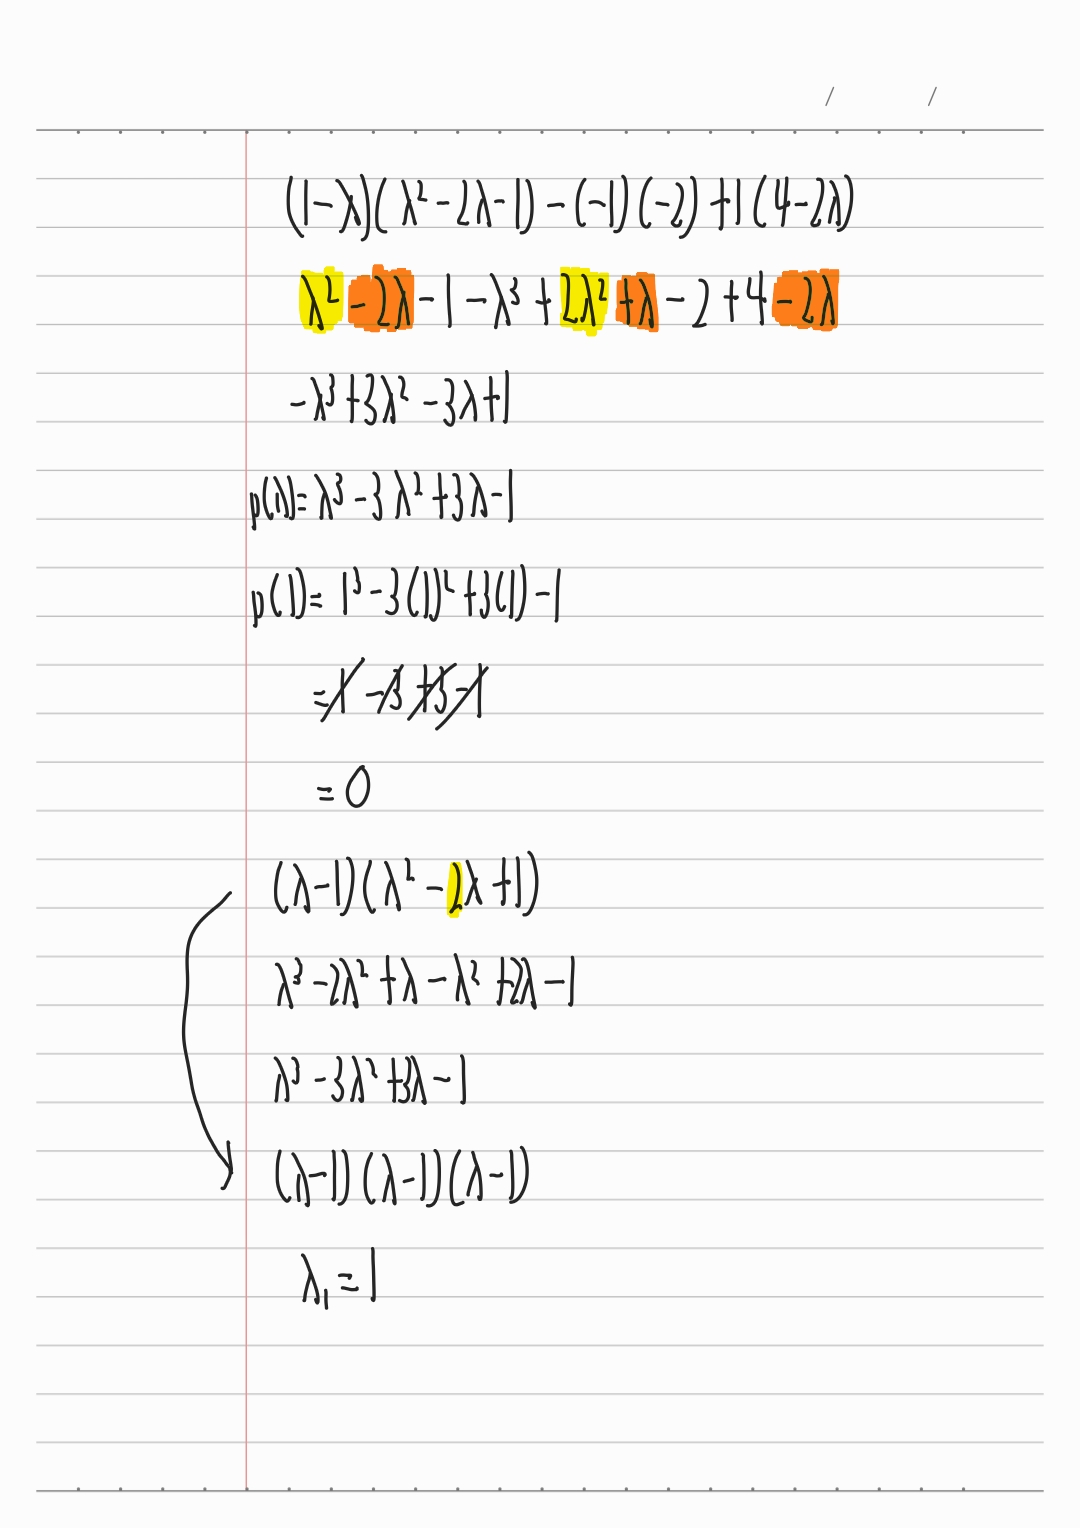 / /
(1-λ)(λ²-2λ-1)-(-1)(-2)+1(4-2λ)
λ²-2λ-1-λ³+2λ²+λ-2+4-2λ
-λ³+3λ²-3λ+1
p(λ)=λ³-3λ²+3λ-1
p(1)=1³-3(1)²+3(1)-1
=1-3+3-1
=0
(λ-1)(λ²-2λ+1)
λ³-2λ²+λ-λ²+2λ-1
λ³-3λ²+3λ-1
(λ-1)(λ-1)(λ-1)
λ₁=1